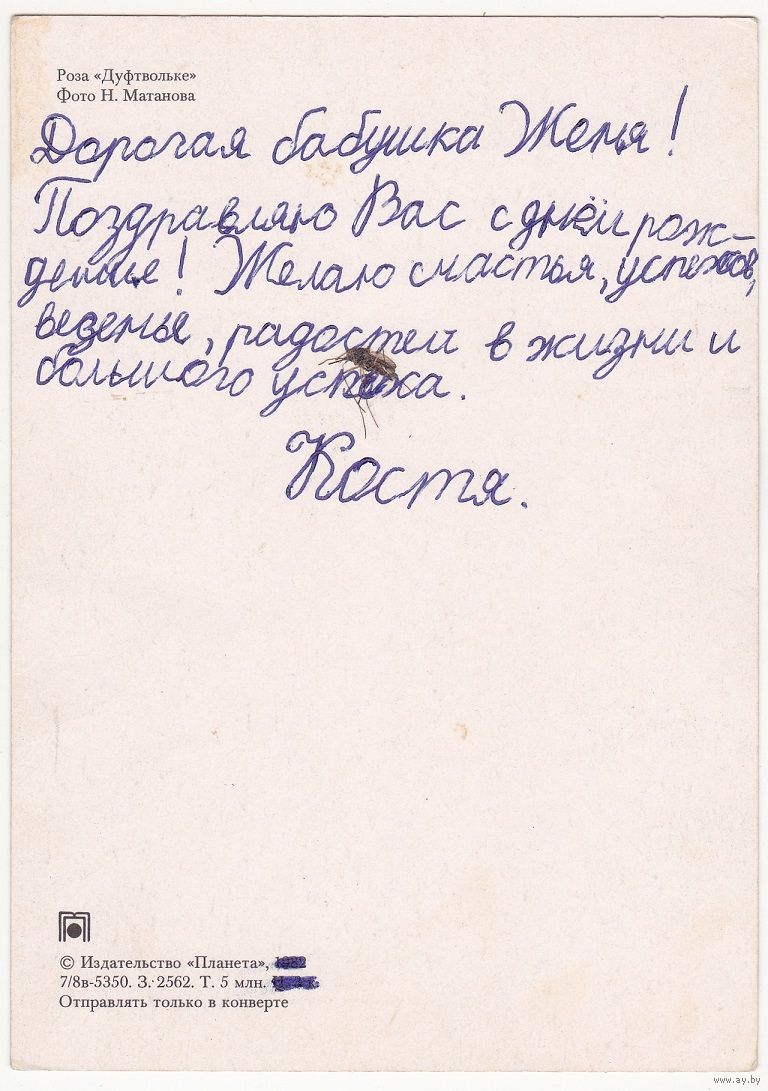 Роза «Дуфтвольке»
Фото Н. Матанова
Дорогая бабушка Женя!
Поздравляю Вас с днём рож-
денье! Желаю счастья, успехов,
везенья, радостей в жизни и
большого успеха.
Костя.
© Издательство «Планета», 1982
7/8в-5350. З. 2562. Т. 5 млн.
Отправлять только в конверте
www.ay.by